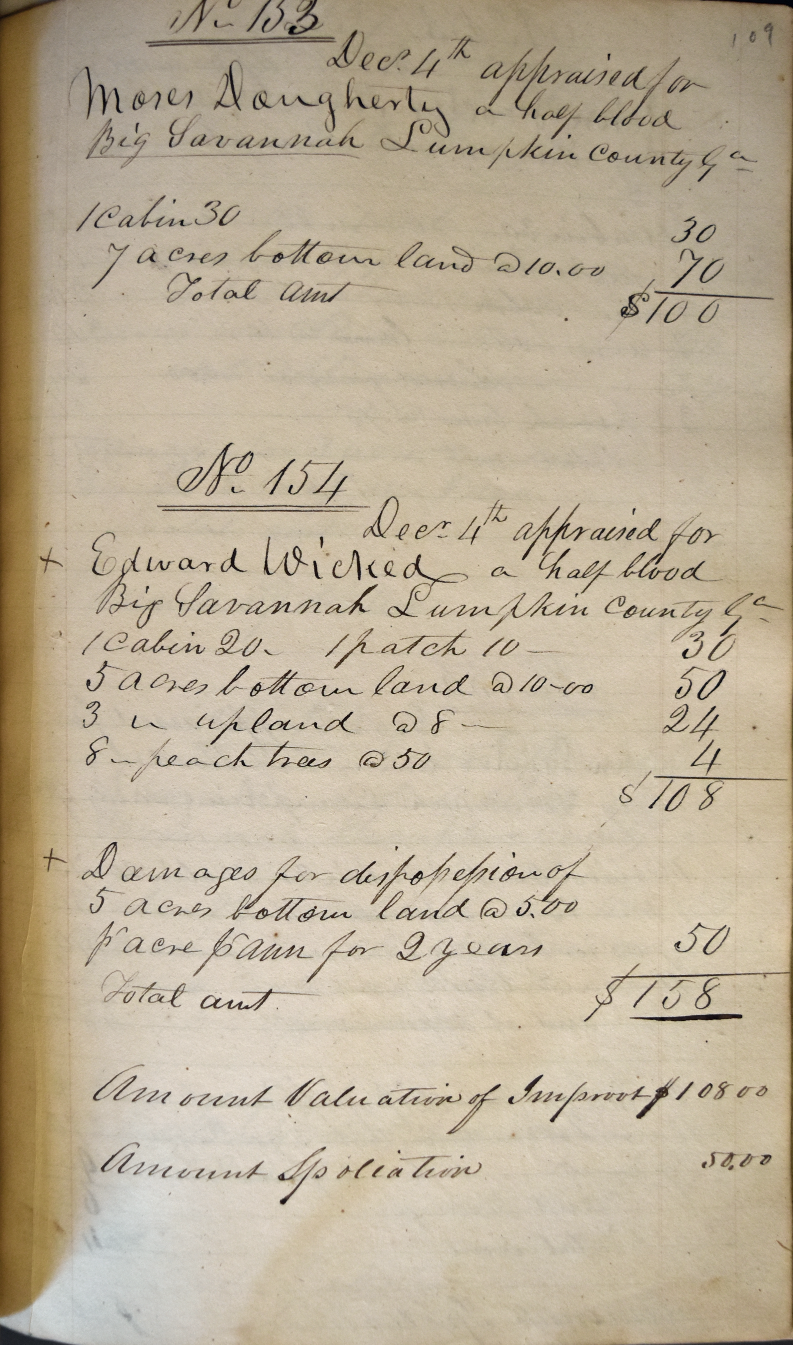 109
No 153
Decr 4th appraised for
Moses Daugherty a half blood
Big Savannah Lumpkin County Ga
1 Cabin 30 30
7 acres bottom land @ 10.00 70
Total amt $100
No 154
Decr 4th appraised for
+ Edward Wicked a half blood
Big Savannah Lumpkin County Ga
1 Cabin 20- 1 patch 10- 30
5 acres bottom land @ 10-00 50
3 " upland @ 8- 24
8 - peach trees @ 50 4
$108
+ Damages for dispossession of
5 acres bottom land @ 5.00
pr acre pr ann for 2 years 50
Total amt. $158
Amount Valuation of Improvt $108 00
Amount Spoliation 50.00